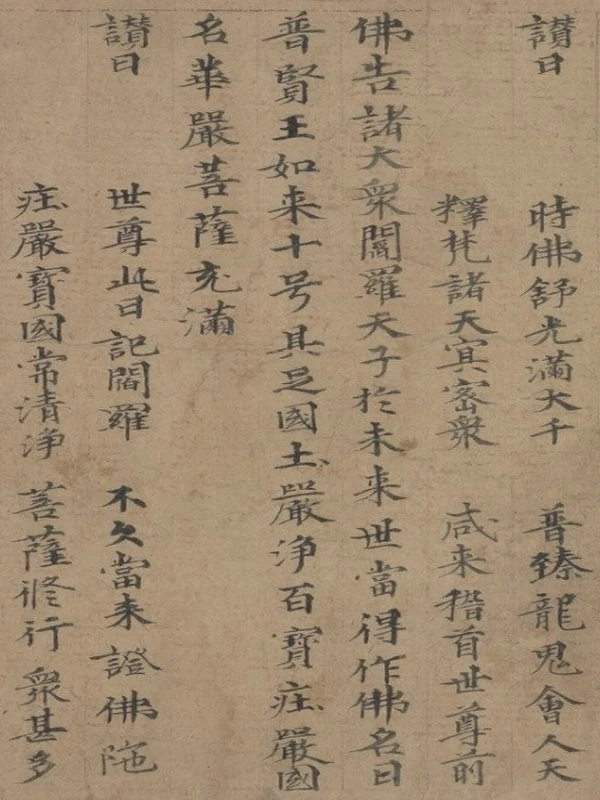 讃曰
時佛舒光滿大千 普臻龍鬼會人天
釋梵諸天冥密衆 咸来稽首世尊前
佛告諸大衆閻羅天子於未来世當得作佛名曰
普賢王如来十号具足國土嚴淨百寶㽵嚴國
名華嚴菩薩充滿
讃曰
世尊此日記閻羅 不久當来證佛陁
㽵嚴寶國常清淨 菩薩修行衆甚多